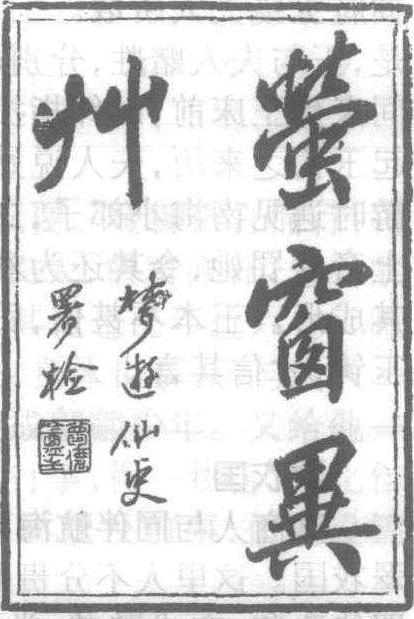 螢窗異
艸
夢遊仙史
署檢